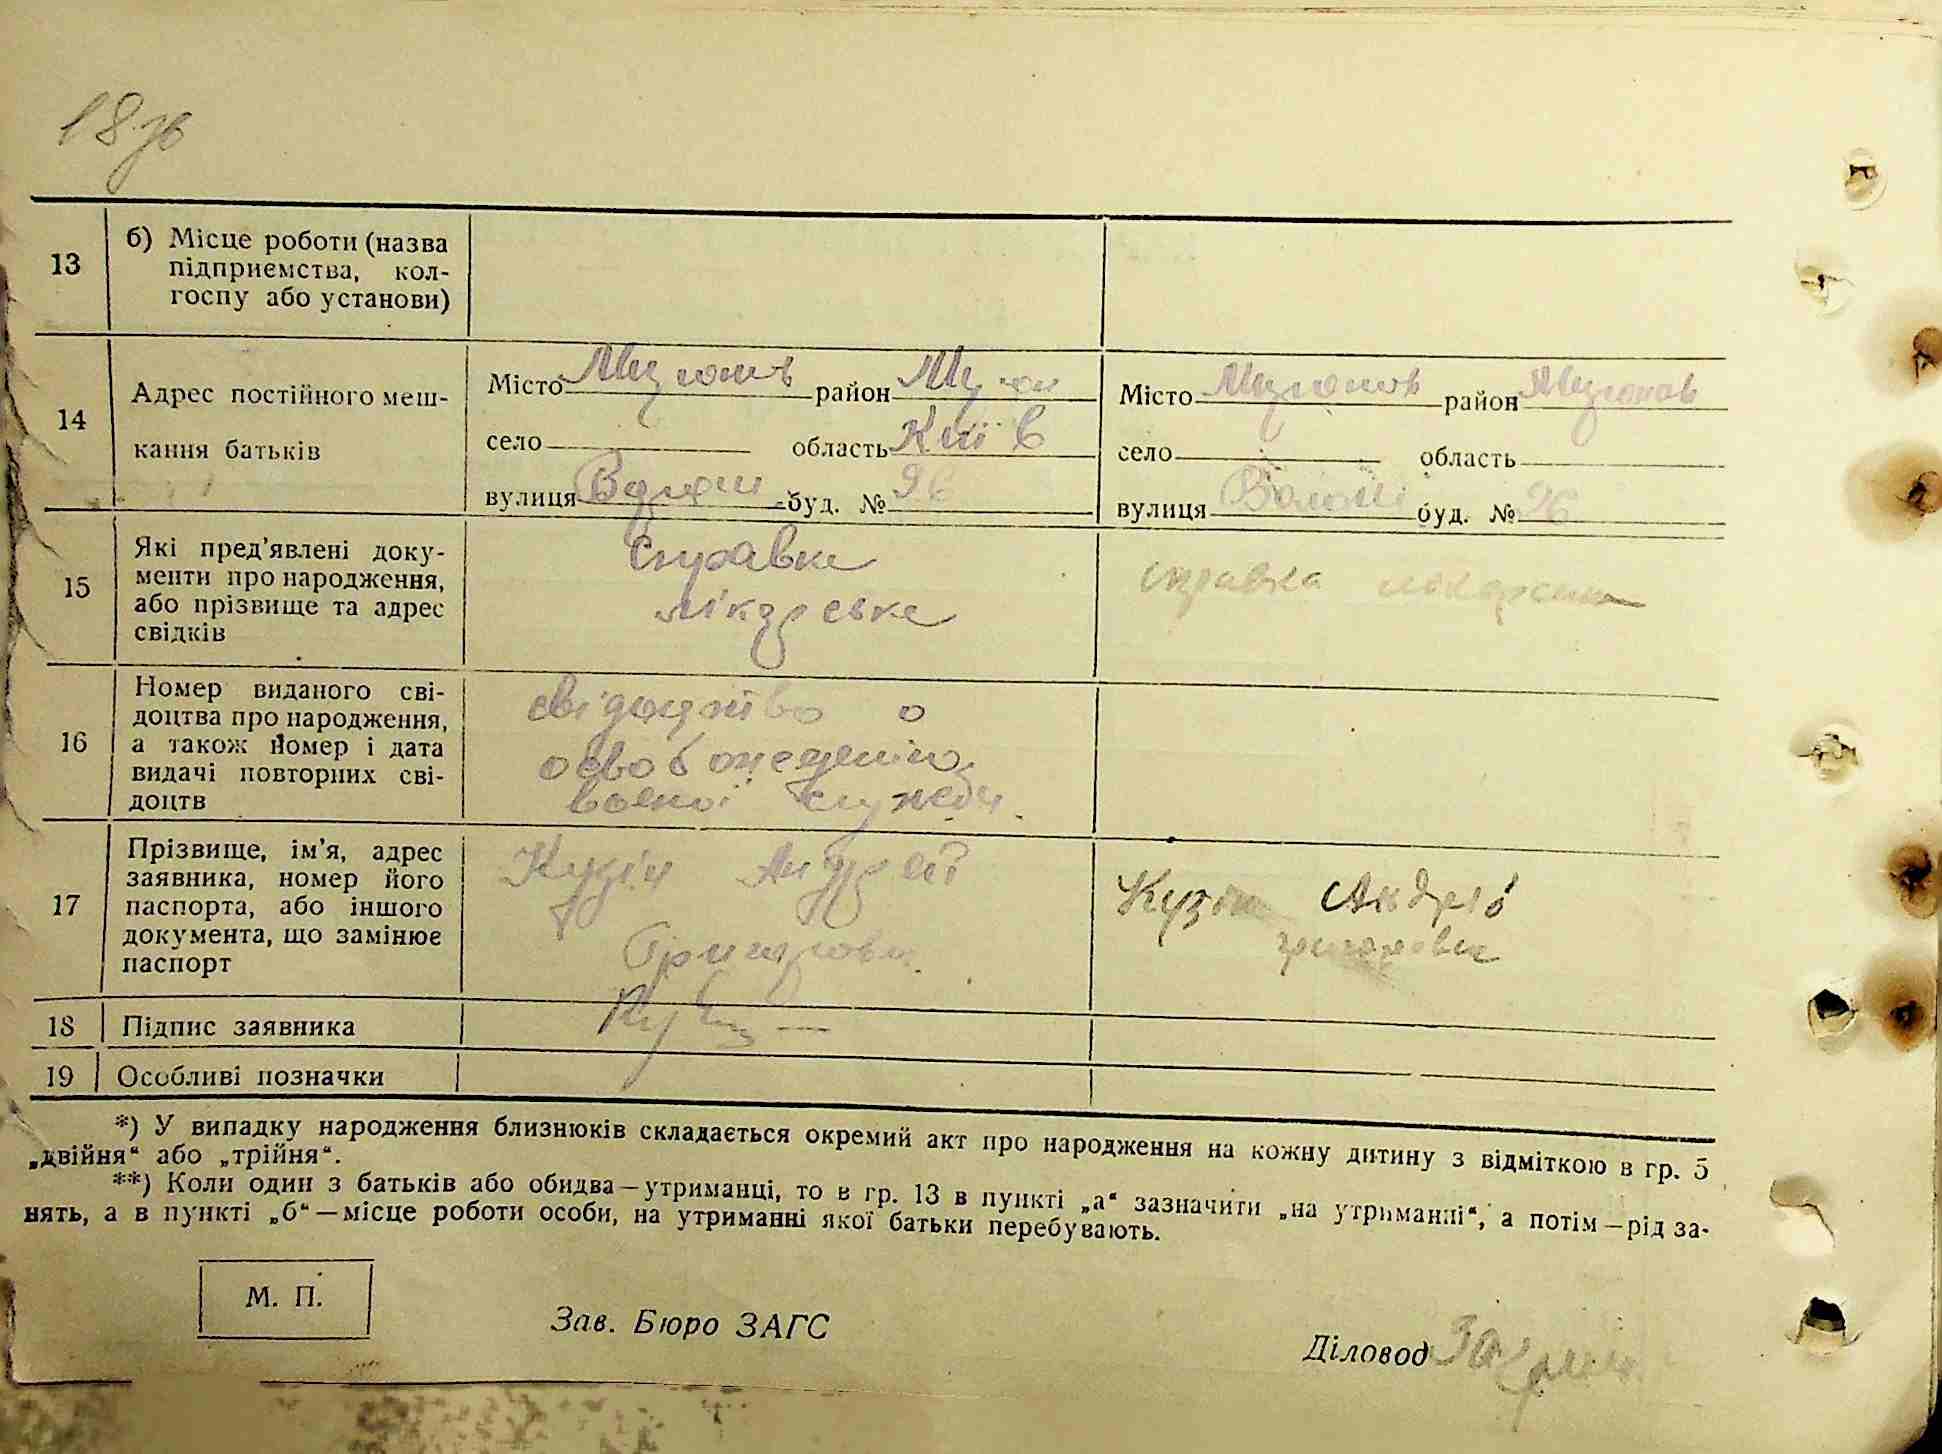 18 зв
13 б) Місце роботи (назва
підприємства, кол-
госпу або установи)
14 Адрес постійного меш-
кання батьків
Місто район
село область Київ
вулиця буд. № 96
Місто район
село область
вулиця буд. № 96
15 Які пред'явлені доку-
менти про народження,
або прізвище та адрес
свідків
Справка
лікарська
справка
16 Номер виданого сві-
доцтва про народження,
а також номер і дата
видачі повторних сві-
доцтв
свідоцтво о
служби
17 Прізвище, ім'я, адрес
заявника, номер його
паспорта, або іншого
документа, що замінює
паспорт
Кузін Андрей
Кузін Андрій
18 Підпис заявника
19 Особливі позначки
*) У випадку народження близнюків складається окремий акт про народження на кожну дитину з відміткою в гр. 5
„двійня“ або „трійня“.
**) Коли один з батьків або обидва—утриманці, то в гр. 13 в пункті „а“ зазначити „на утриманні“, а потім—рід за-
нять, а в пункті „б“—місце роботи особи, на утриманні якої батьки перебувають.
М. П.
Зав. Бюро ЗАГС
Діловод